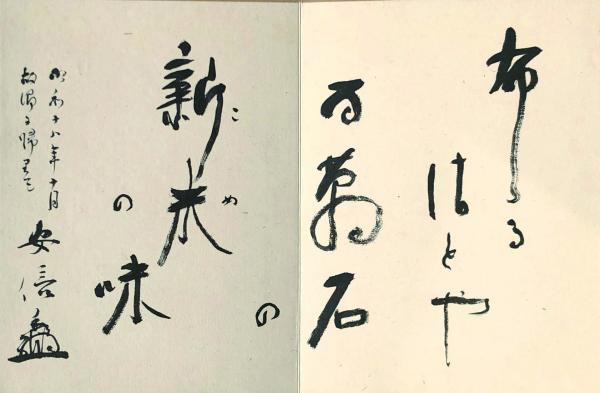 布る
佐とや
百萬石
の
新米
こめ
の味
昭和十八年十月
故郷に帰里て
安信